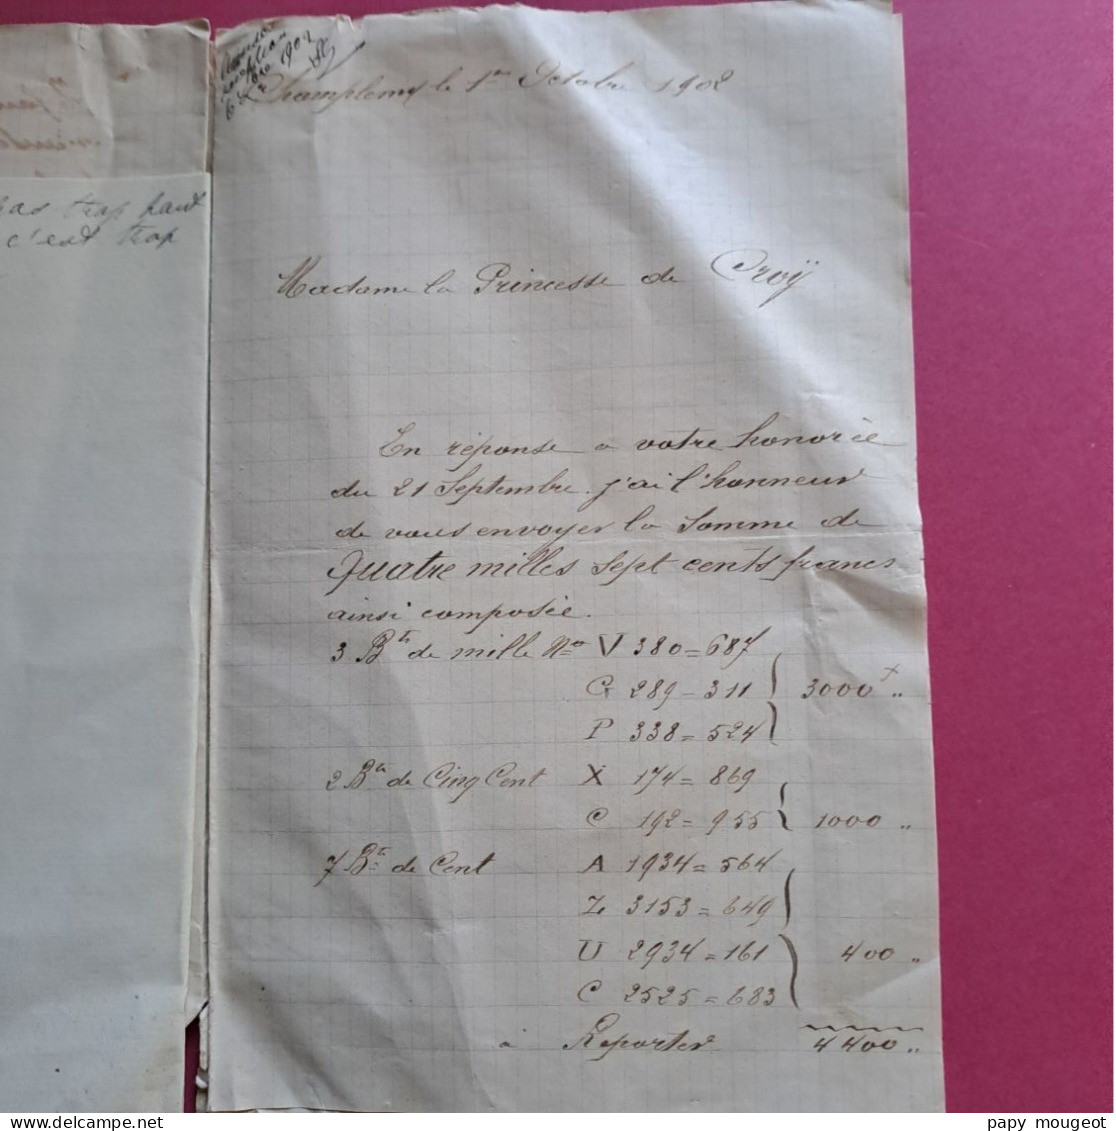 1902
Champlemy le 1er Octobre 1902
pas trop haut
c'est trop
Madame la Princesse de Croÿ
En réponse a votre honorée
du 21 Septembre. j'ai l'honneur
de vous envoyer la Somme de
Quatre milles Sept cents francs
ainsi composée.
3 Bts de mille Nos V 380=687
G 289-311 3000 "
P 338=524
2 Bts de Cinq Cent X 174=869
C 192=955 1000 "
7 Bts de Cent A 1934=564
Z 3153=649
U 2934=161 400 "
C 2525=683
a Reporter 4400 "
papy mougeot